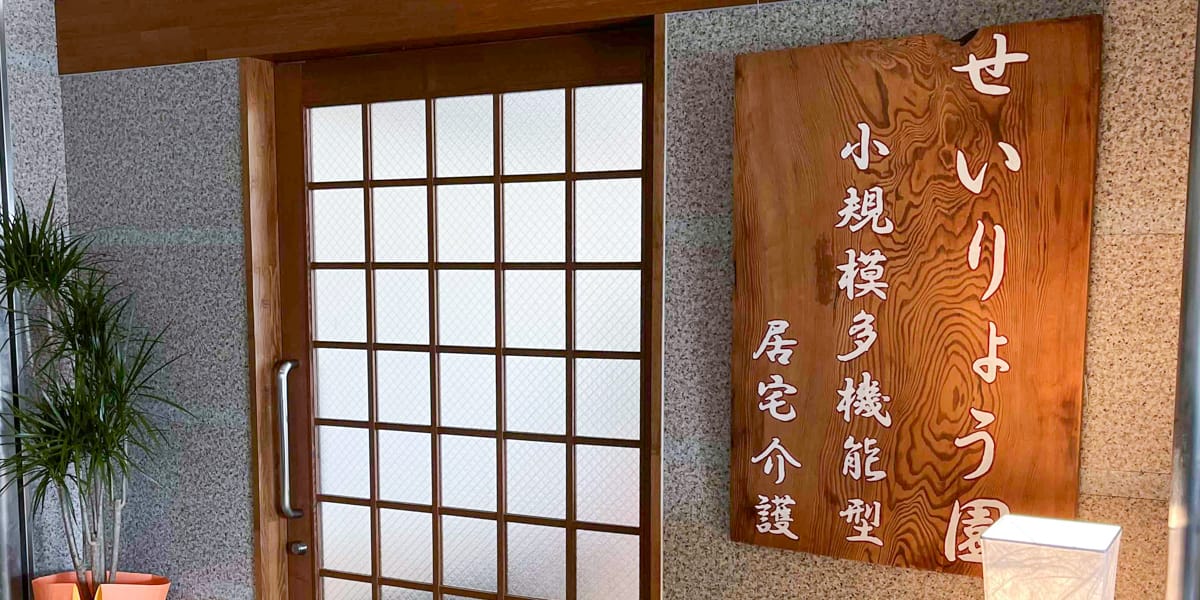 せいりょう園
小規模多機能型
居宅介護